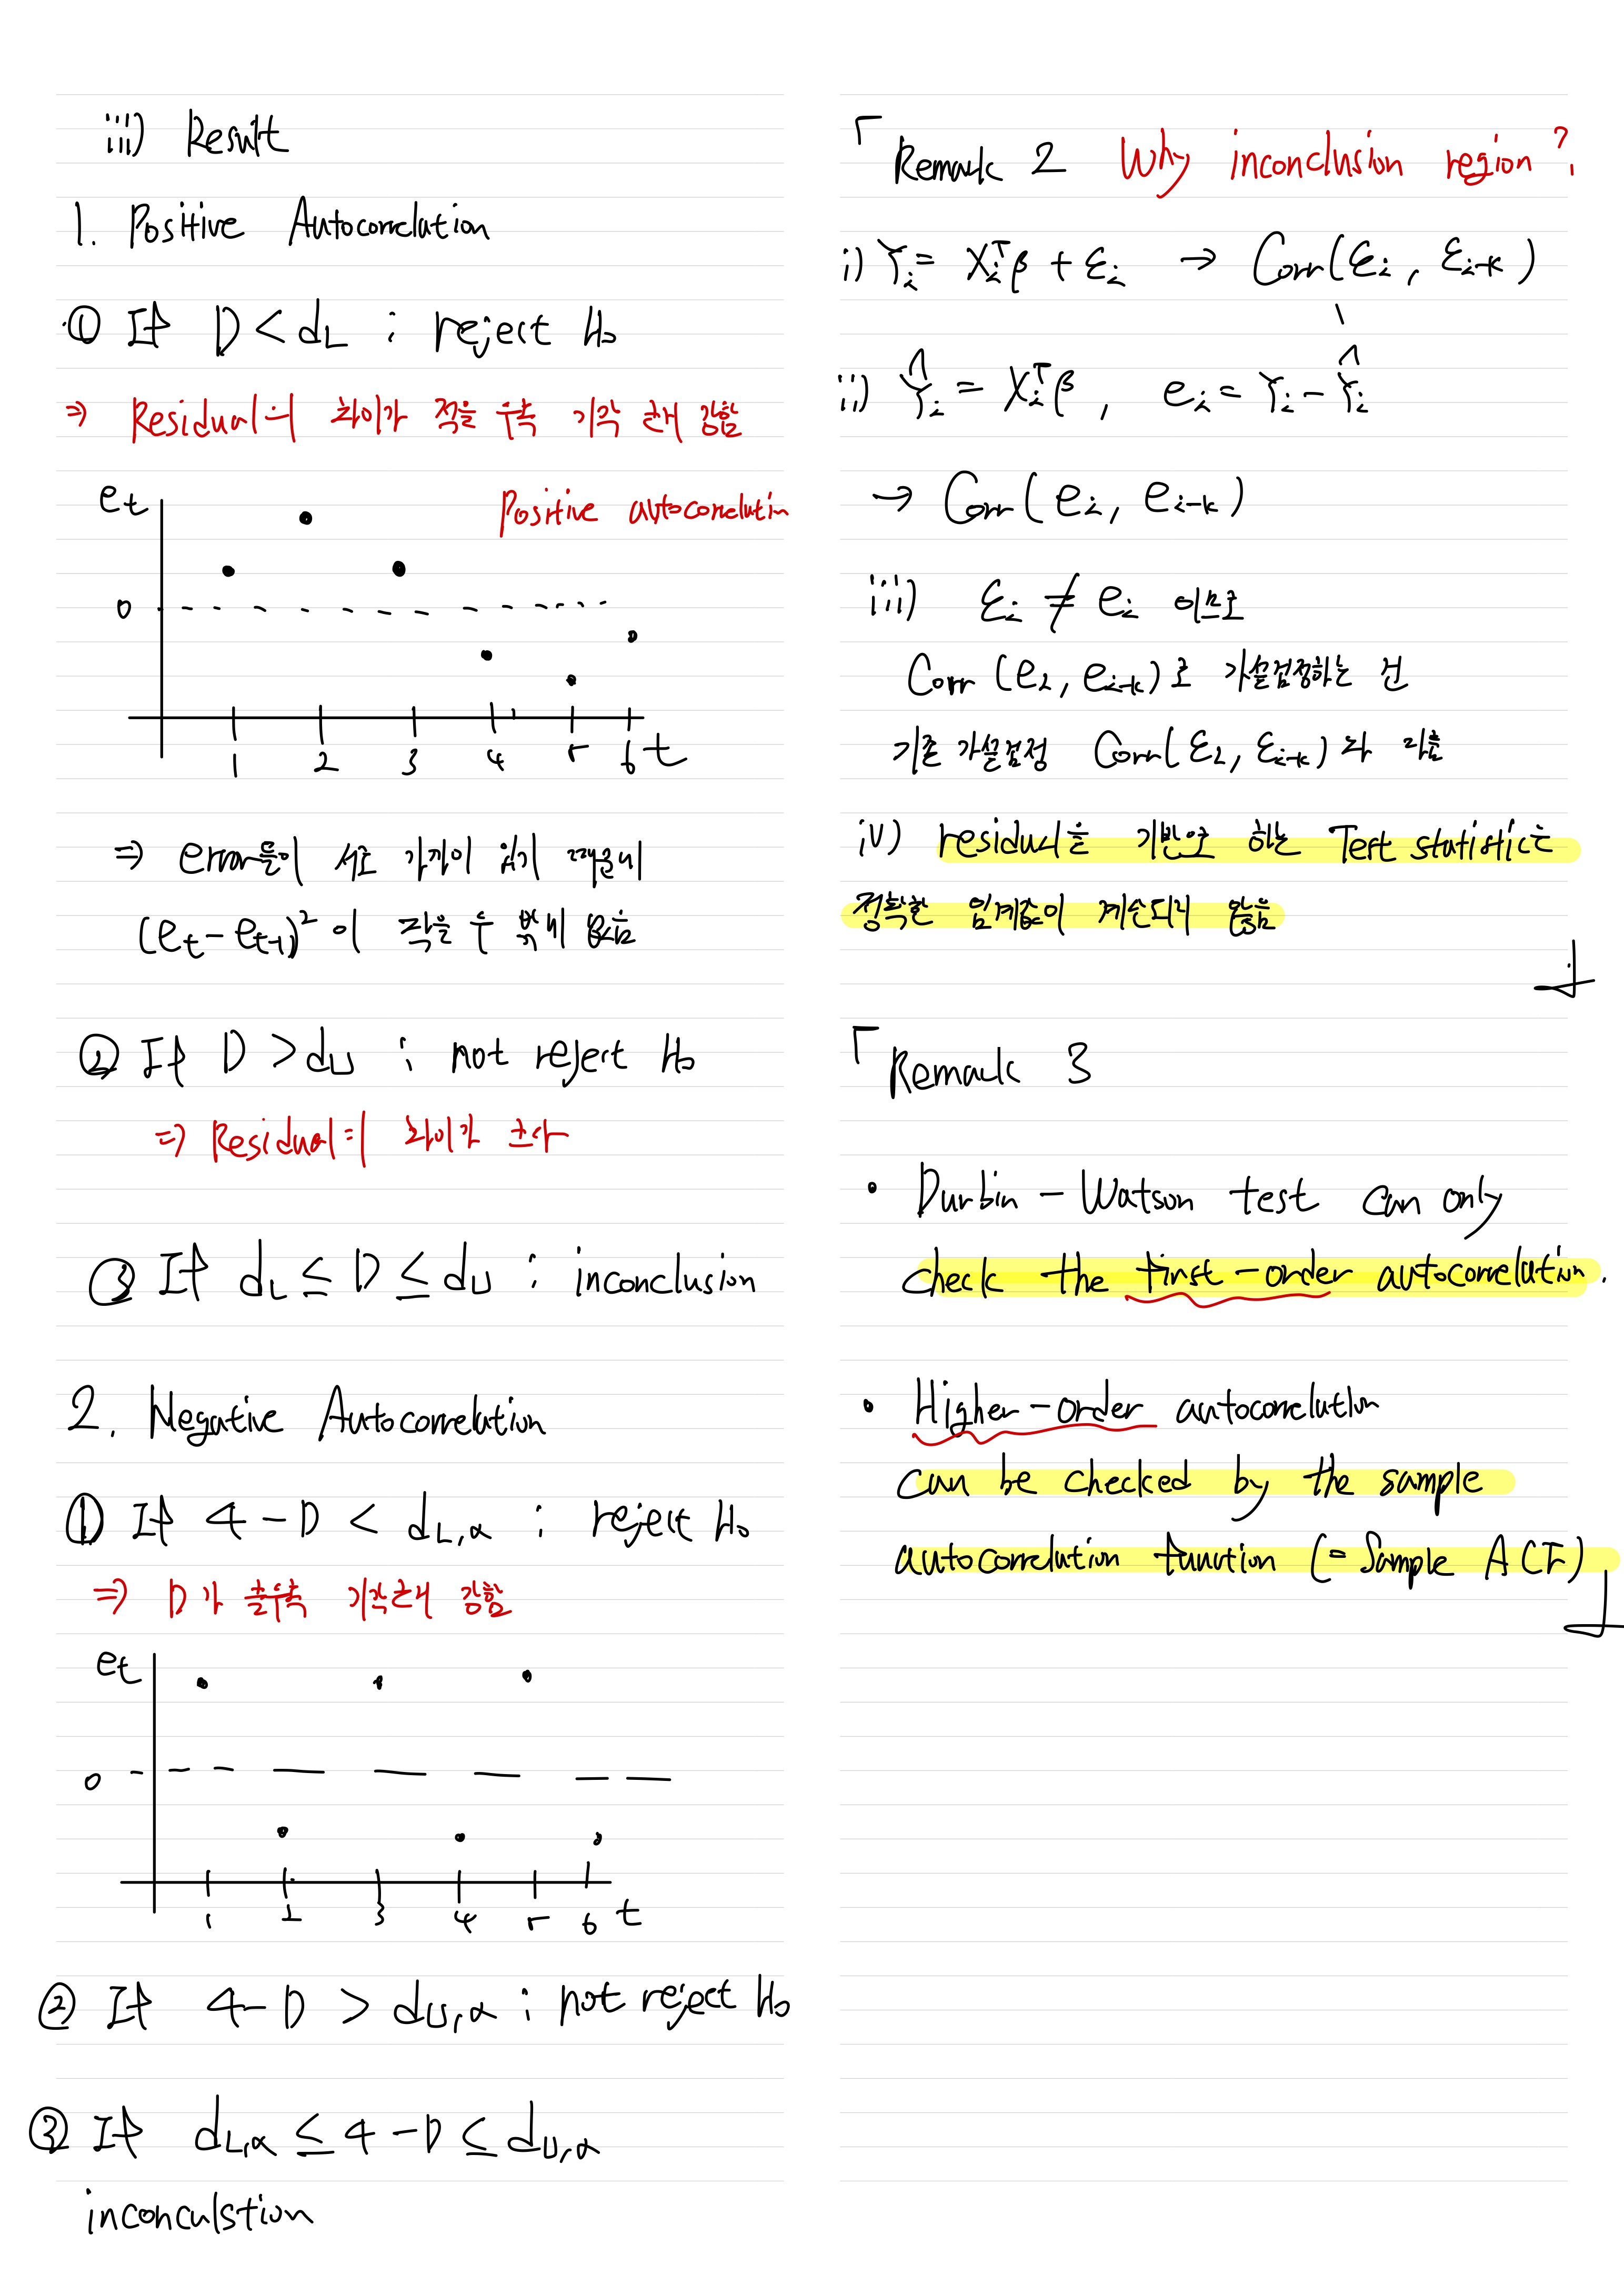 iii) Result
1. Positive Autocorrelation
① If D < dL : reject H₀
⇒ Residual의 차이가 적을수록 기각 근거 강함
et
Positive autocorrelatin
0
1 2 3 4 5 6 t
⇒ error들이 서로 가까이 있기 때문에
(et - et-1)² 이 작을 수 밖에 없음
② If D > dU : not reject H₀
⇒ Residual의 차이가 크다
③ If dL ≤ D ≤ dU : inconclusion
2. Negative Autocorrelation
① If 4 - D < dL,α : reject H₀
⇒ D가 클수록 기각근거 강함
et
0
1 2 3 4 5 6 t
② If 4 - D > dU,α : not reject H₀
③ If dL,α ≤ 4 - D ≤ dU,α
inconculstion
「Remark 2 Why inconclusion region?
i) Yi = Xiᵀβ + εi → Corr(εi, εi-k)
ii) Ŷi = Xiᵀβ̂, ei = Yi - Ŷi
→ Corr(ei, ei-k)
iii) εi ≠ ei 이므로
Corr(ei, ei-k)로 가설검정하는 건
기존 가설검정 Corr(εi, εi-k)와 다름
iv) residual을 기반으로 하는 Test statistic는
정확한 임계값이 계산되지 않음
」
「Remark 3
• Durbin - Watson test can only
check the first-order autocorrelation.
• Higher-order autocorrelation
can be checked by the sample
autocorrelation function (= Sample ACF)
」